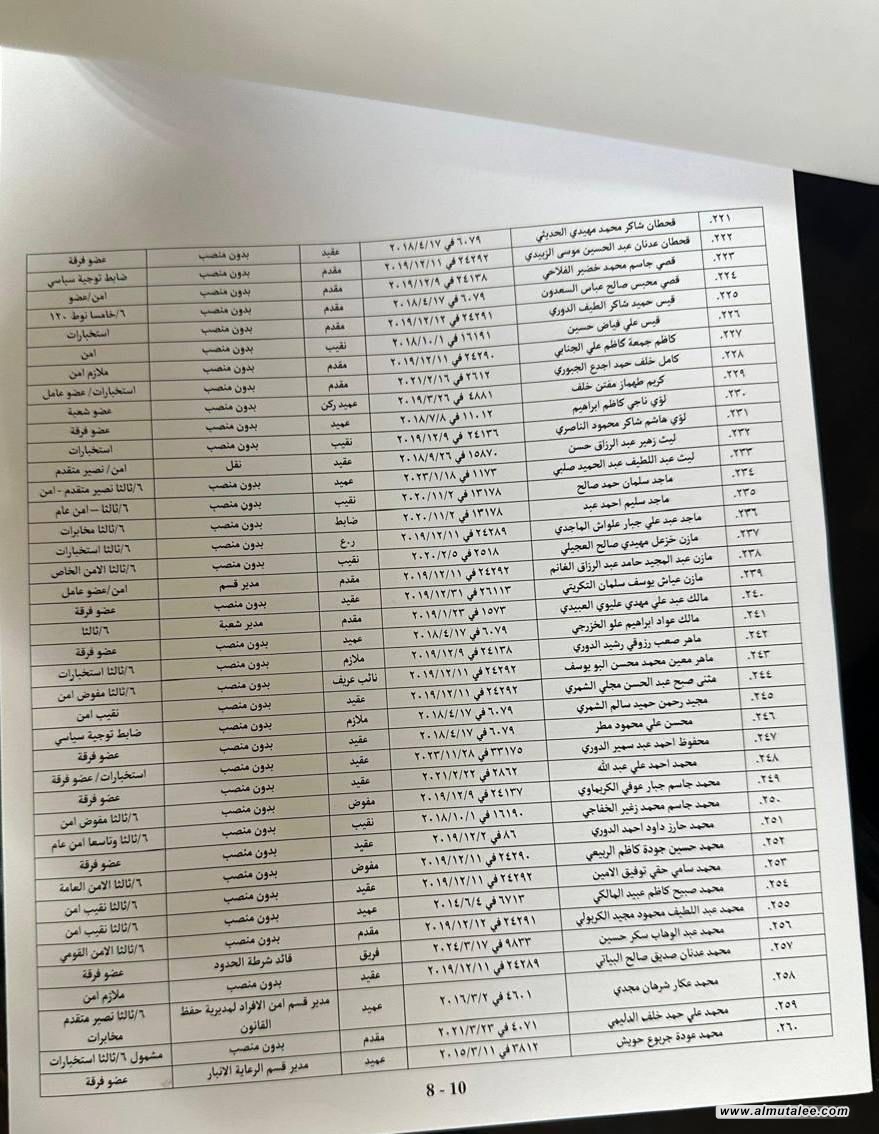 ٢٢١. قحطان شاكر محمد مهيدي الحديثي ٦٠٧٩ في ٢٠١٨/٤/١٧ عقيد بدون منصب عضو فرقة
٢٢٢. قحطان عدنان عبد الحسين موسى الزبيدي ٢٤٢٩٢ في ٢٠١٩/١٢/١١ مقدم بدون منصب ضابط توجية سياسي
٢٢٣. قصي جاسم محمد خضير الفلاحي ٢٤١٣٨ في ٢٠١٩/١٢/٩ مقدم بدون منصب امن/عضو
٢٢٤. قصي محبس صالح عباس السعدون ٦٠٧٩ في ٢٠١٨/٤/١٧ مقدم بدون منصب ٦/خامسا نوط ١٢٠
٢٢٥. قيس حميد شاكر الطيف الدوري ٢٤٢٩١ في ٢٠١٩/١٢/١٢ مقدم بدون منصب استخبارات
٢٢٦. قيس علي فياض حسين ١٦١٩١ في ٢٠١٨/١٠/١ نقيب بدون منصب امن
٢٢٧. كاظم جمعة كاظم علي الجنابي ٢٤٢٩٠ في ٢٠١٩/١٢/١١ مقدم بدون منصب ملازم امن
٢٢٨. كامل خلف حمد اجدع الجبوري ٢٦١٢ في ٢٠٢١/٢/١٦ مقدم بدون منصب استخبارات/ عضو عامل
٢٢٩. كريم طهماز مفتن خلف ٤٨٨١ في ٢٠١٩/٣/٢٦ عميد ركن بدون منصب عضو شعبة
٢٣٠. لؤي ناجي كاظم ابراهيم ١١٠١٢ في ٢٠١٨/٧/٨ عميد بدون منصب عضو فرقة
٢٣١. لؤي هاشم شاكر محمود الناصري ٢٤١٣٦ في ٢٠١٩/١٢/٩ نقيب بدون منصب استخبارات
٢٣٢. ليث زهير عبد الرزاق حسن ١٥٨٧٠ في ٢٠١٨/٩/٢٦ عقيد نقل امن/ نصير متقدم
٢٣٣. ليث عبد اللطيف عبد الحميد صلبي ١١٧٣ في ٢٠٢٣/١/١٨ عميد بدون منصب ٦/ثالثا نصير متقدم - امن
٢٣٤. ماجد سلمان حمد صالح ١٣١٧٨ في ٢٠٢٠/١١/٢ نقيب بدون منصب ٦/ثالثا – امن عام
٢٣٥. ماجد سليم احمد عبد ١٣١٧٨ في ٢٠٢٠/١١/٢ ضابط بدون منصب ٦/ثالثا مخابرات
٢٣٦. ماجد عبد علي جبار علواش الماجدي ٢٤٢٨٩ في ٢٠١٩/١٢/١١ ر.ع بدون منصب ٦/ثالثا استخبارات
٢٣٧. مازن خزعل مهيدي صالح العجيلي ٢٥١٨ في ٢٠٢٠/٢/٥ نقيب بدون منصب ٦/ثالثا الامن الخاص
٢٣٨. مازن عبد المجيد حامد عبد الرزاق الغانم ٢٤٢٩٢ في ٢٠١٩/١٢/١١ مقدم مدير قسم امن/عضو عامل
٢٣٩. مازن عياش يوسف سلمان التكريتي ٢٦١١٣ في ٢٠١٩/١٢/٣١ عقيد بدون منصب عضو فرقة
٢٤٠. مالك عبد علي مهدي عليوي العبيدي ١٥٧٣ في ٢٠١٩/١/٢٣ مقدم مدير شعبة ٦/ثالثا
٢٤١. مالك عواد ابراهيم علو الخزرجي ٦٠٧٩ في ٢٠١٨/٤/١٧ عميد بدون منصب عضو فرقة
٢٤٢. ماهر صعب رزوقي رشيد الدوري ٢٤١٣٨ في ٢٠١٩/١٢/٩ ملازم بدون منصب ٦/ثالثا استخبارات
٢٤٣. ماهر معين محمد محسن البو يوسف ٢٤٢٩٢ في ٢٠١٩/١٢/١١ نائب عريف بدون منصب ٦/ثالثا مفوض امن
٢٤٤. مثنى صبح عبد الحسن مجلي الشمري ٢٤٢٩٢ في ٢٠١٩/١٢/١١ عقيد بدون منصب نقيب امن
٢٤٥. مجيد رحمن حميد سالم الشمري ٦٠٧٩ في ٢٠١٨/٤/١٧ ملازم بدون منصب ضابط توجية سياسي
٢٤٦. محسن علي محمود مطر ٦٠٧٩ في ٢٠١٨/٤/١٧ عقيد بدون منصب عضو فرقة
٢٤٧. محفوظ احمد عبد سمير الدوري ٣٣١٧٥ في ٢٠٢٣/١١/٢٨ عقيد بدون منصب استخبارات/ عضو فرقة
٢٤٨. محمد احمد علي عبد الله ٢٨٦٢ في ٢٠٢١/٢/٢٢ عقيد بدون منصب عضو فرقة
٢٤٩. محمد جاسم جبار عوفي الكريماوي ٢٤١٣٧ في ٢٠١٩/١٢/٩ مفوض بدون منصب ٦/ثالثا مفوض امن
٢٥٠. محمد جاسم محمد زغير الخفاجي ١٦١٩٠ في ٢٠١٨/١٠/١ نقيب بدون منصب ٦/ثالثا وتاسعا امن عام
٢٥١. محمد حارز داود احمد الدوري ٨٦ في ٢٠١٩/١٢/٢ عقيد بدون منصب عضو فرقة
٢٥٢. محمد حسين جودة كاظم الربيعي ٢٤٢٩٠ في ٢٠١٩/١٢/١١ مفوض بدون منصب ٦/ثالثا الامن العامة
٢٥٣. محمد سامي حقي توفيق الامين ٢٤٢٩٢ في ٢٠١٩/١٢/١١ عقيد بدون منصب ٦/ثالثا نقيب امن
٢٥٤. محمد صبيح كاظم عبيد المالكي ٦٧١٣ في ٢٠١٤/٦/٤ عميد بدون منصب ٦/ثالثا نقيب امن
٢٥٥. محمد عبد اللطيف محمود مجيد الكربولي ٢٤٢٩١ في ٢٠١٩/١٢/١٢ مقدم بدون منصب ٦/ثالثا الامن القومي
٢٥٦. محمد عبد الوهاب سكر حسين ٩٨٣٣ في ٢٠٢٤/٣/١٧ فريق قائد شرطة الحدود عضو فرقة
٢٥٧. محمد عدنان صديق صالح البياتي ٢٤٢٨٩ في ٢٠١٩/١٢/١١ عقيد بدون منصب ملازم امن
٢٥٨. محمد عكار شرهان مجدي ٤٦٠١ في ٢٠١٦/٣/٢ عميد مدير قسم امن الافراد لمديرية حفظ القانون ٦/ثالثا نصير متقدم مخابرات
٢٥٩. محمد علي حمد خلف الدليمي ٤٠٧١ في ٢٠٢١/٣/٢٣ مقدم بدون منصب مشمول ٦/ثالثا استخبارات
٢٦٠. محمد عودة جربوع حويش ٣٨١٢ في ٢٠١٥/٣/١١ عميد مدير قسم الرعاية الانبار عضو فرقة
8 - 10
www.almutalee.com